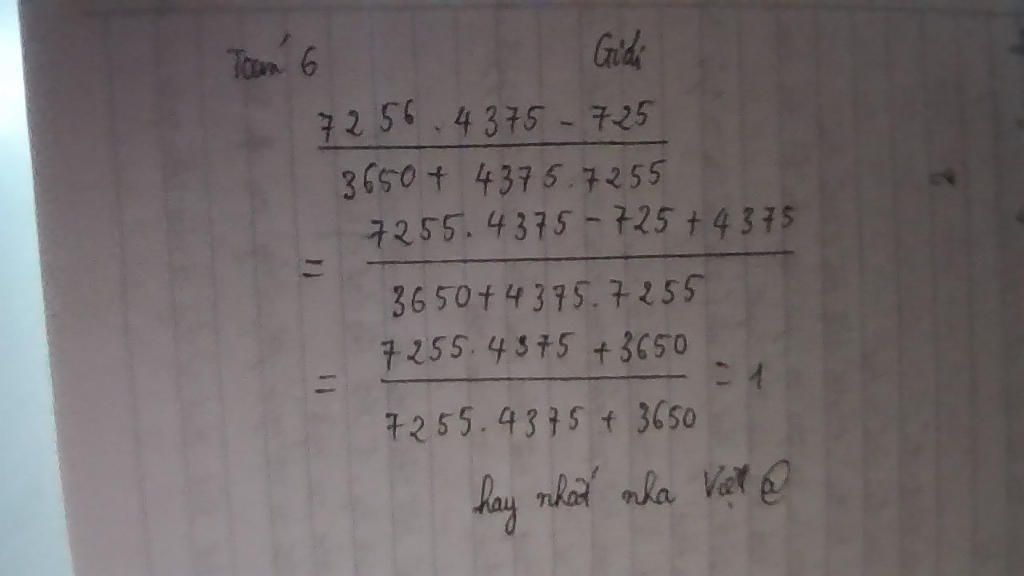 Toán 6 Giải
7256 . 4375 - 725
3650 + 4375 . 7255
= 7255 . 4375 - 725 + 4375
3650 + 4375 . 7255
= 7255 . 4375 + 3650 = 1
7255 . 4375 + 3650
hay nhất nha Việt @